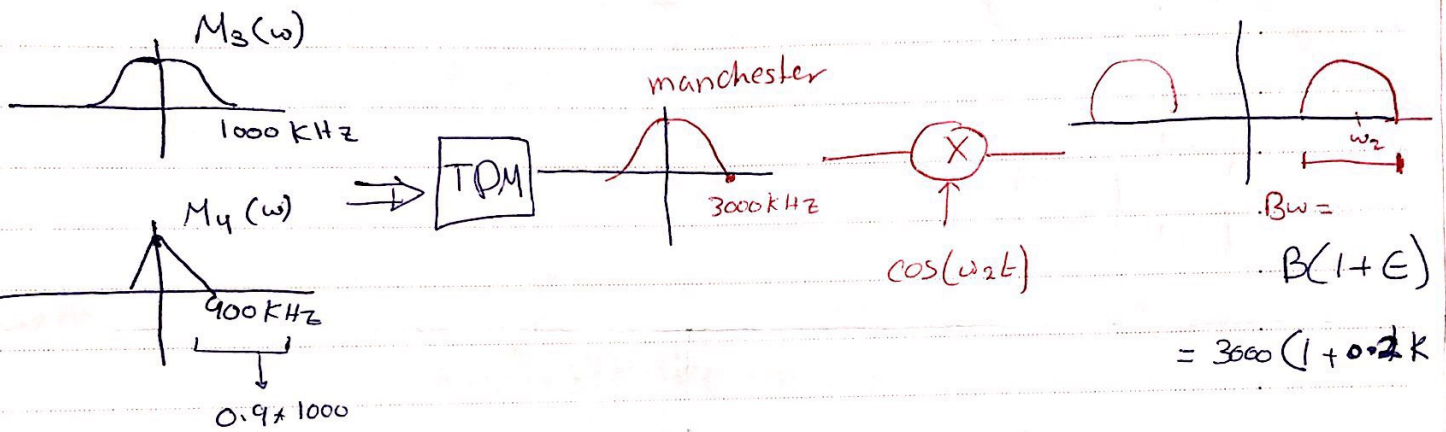 M3(ω)
1000 KHz
M4(ω)
900 KHz
0.9*1000
TDM
manchester
3000 KHz
X
cos(ω2t)
ω2
Bω =
B(1+ϵ)
= 3000 (1+0.2 K